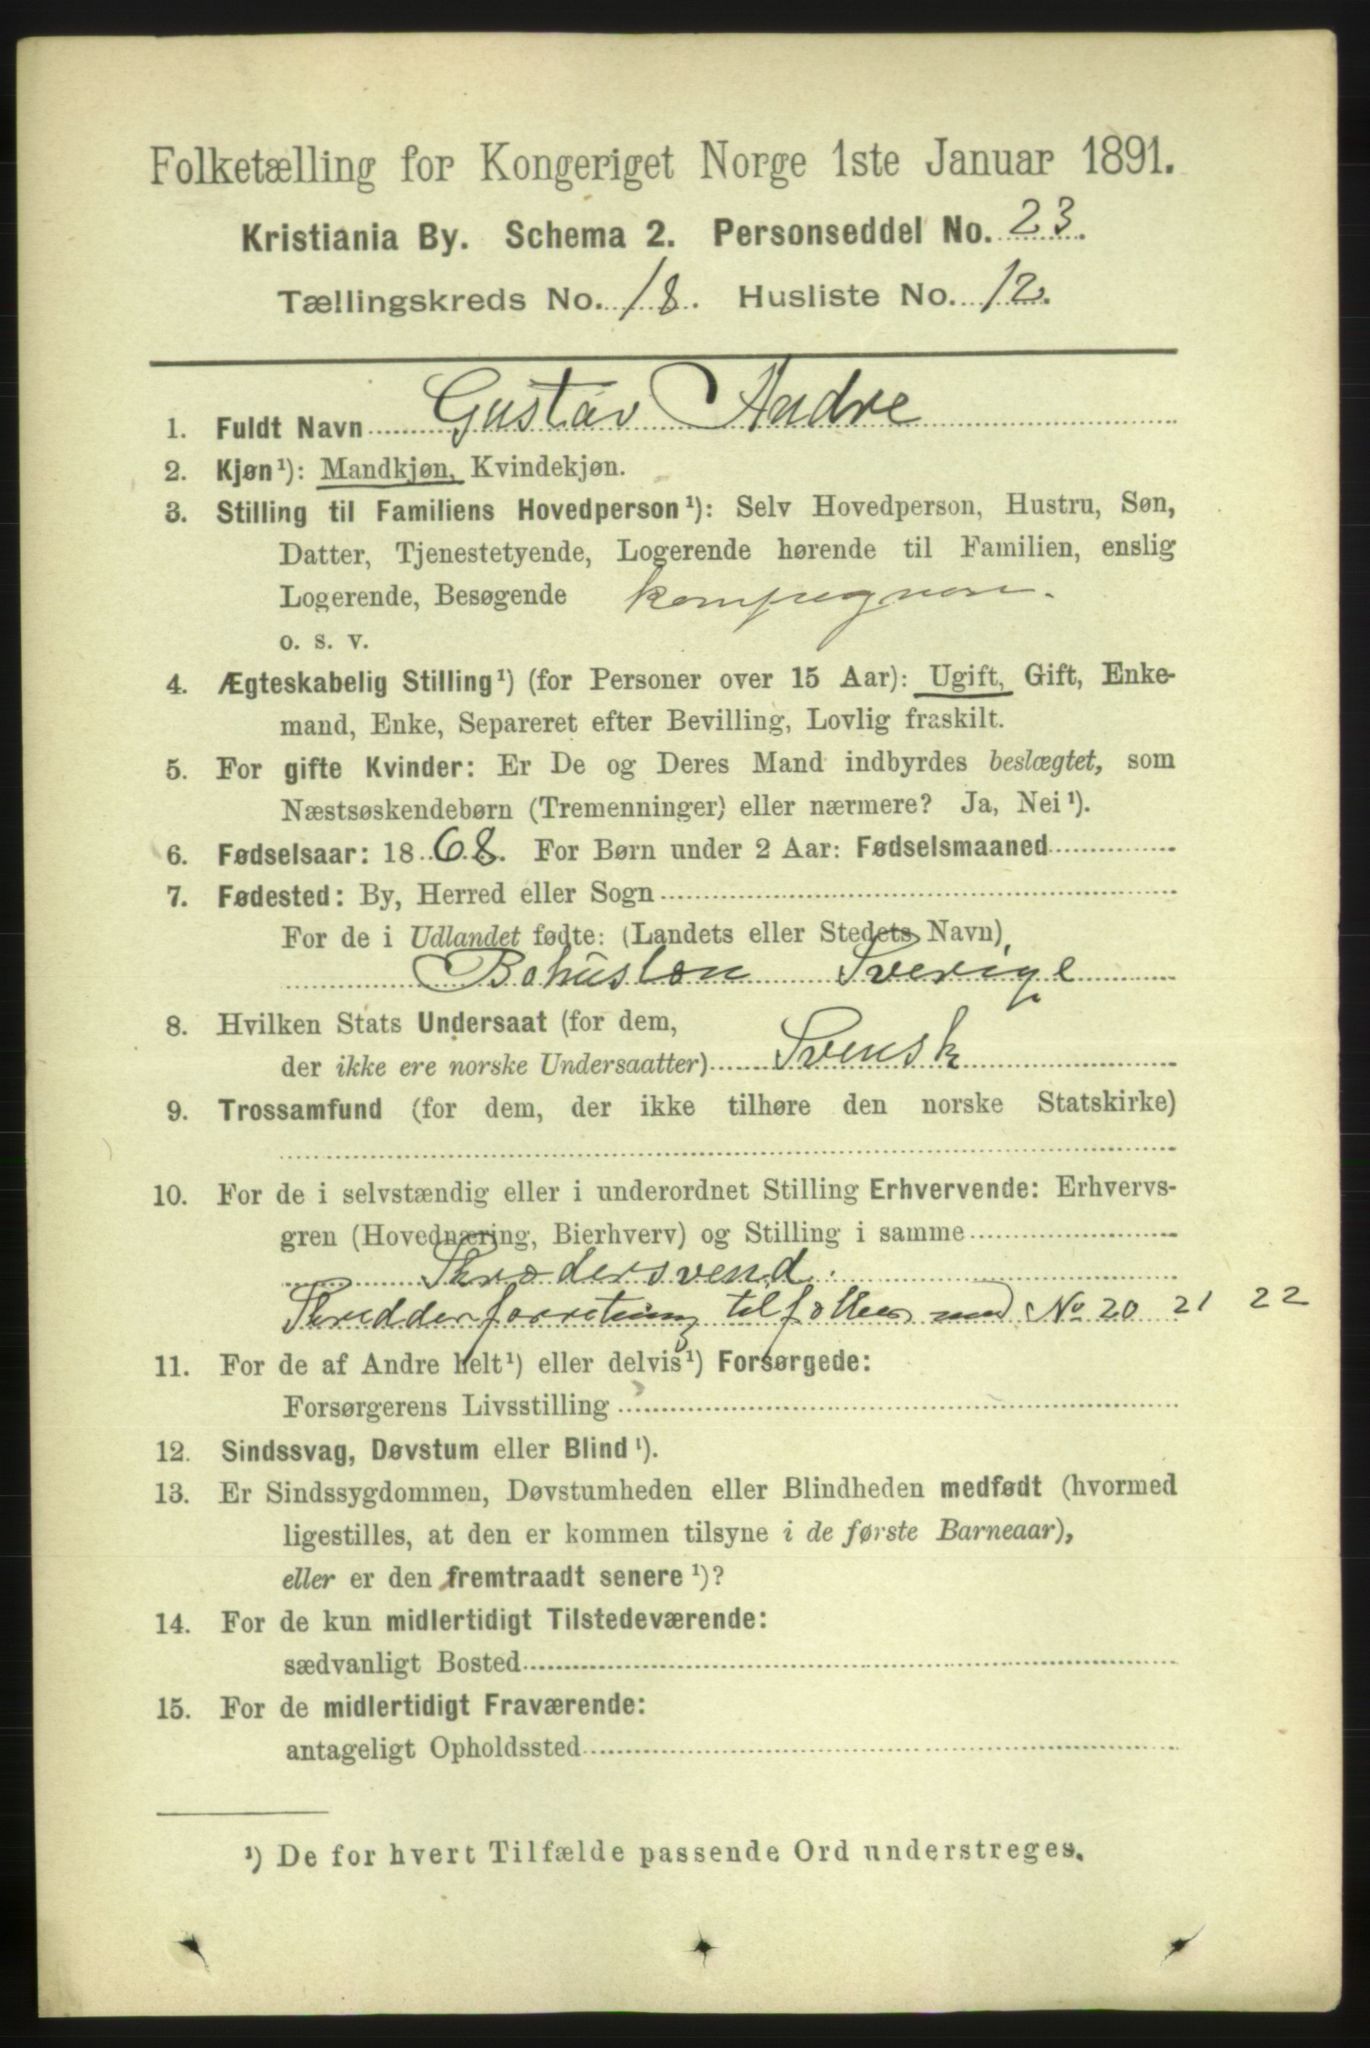 Folketælling for Kongeriget Norge 1ste Januar 1891.
Kristiania By. Schema 2. Personseddel No. 23.
Tællingskreds No. 18. Husliste No. 12.
1. Fuldt Navn Gustav Andre
2. Kjøn¹): Mandkjøn, Kvindekjøn.
3. Stilling til Familiens Hovedperson¹): Selv Hovedperson, Hustru, Søn,
Datter, Tjenestetyende, Logerende hørende til Familien, enslig
Logerende, Besøgende kompagnon.
o. s. v.
4. Ægteskabelig Stilling¹) (for Personer over 15 Aar): Ugift, Gift, Enke-
mand, Enke, Separeret efter Bevilling, Lovlig fraskilt.
5. For gifte Kvinder: Er De og Deres Mand indbyrdes beslægtet, som
Næstsøskendebørn (Tremenninger) eller nærmere? Ja, Nei¹).
6. Fødselsaar: 1868. For Børn under 2 Aar: Fødselsmaaned
7. Fødested: By, Herred eller Sogn
For de i Udlandet fødte: (Landets eller Stedets Navn)
Bohuslæn Sverige
8. Hvilken Stats Undersaat (for dem,
der ikke ere norske Undersaatter) Svensk
9. Trossamfund (for dem, der ikke tilhøre den norske Statskirke)
10. For de i selvstændig eller i underordnet Stilling Erhvervende: Erhvervs-
gren (Hovednæring, Bierhverv) og Stilling i samme
Skrædersvend.
Skredderforretning tilfælles med No 20 21 22
11. For de af Andre helt¹) eller delvis¹) Forsørgede:
Forsørgerens Livsstilling
12. Sindssvag, Døvstum eller Blind¹).
13. Er Sindssygdommen, Døvstumheden eller Blindheden medfødt (hvormed
ligestilles, at den er kommen tilsyne i de første Barneaar),
eller er den fremtraadt senere¹)?
14. For de kun midlertidigt Tilstedeværende:
sædvanligt Bosted
15. For de midlertidigt Fraværende:
antageligt Opholdssted
¹) De for hvert Tilfælde passende Ord understreges.